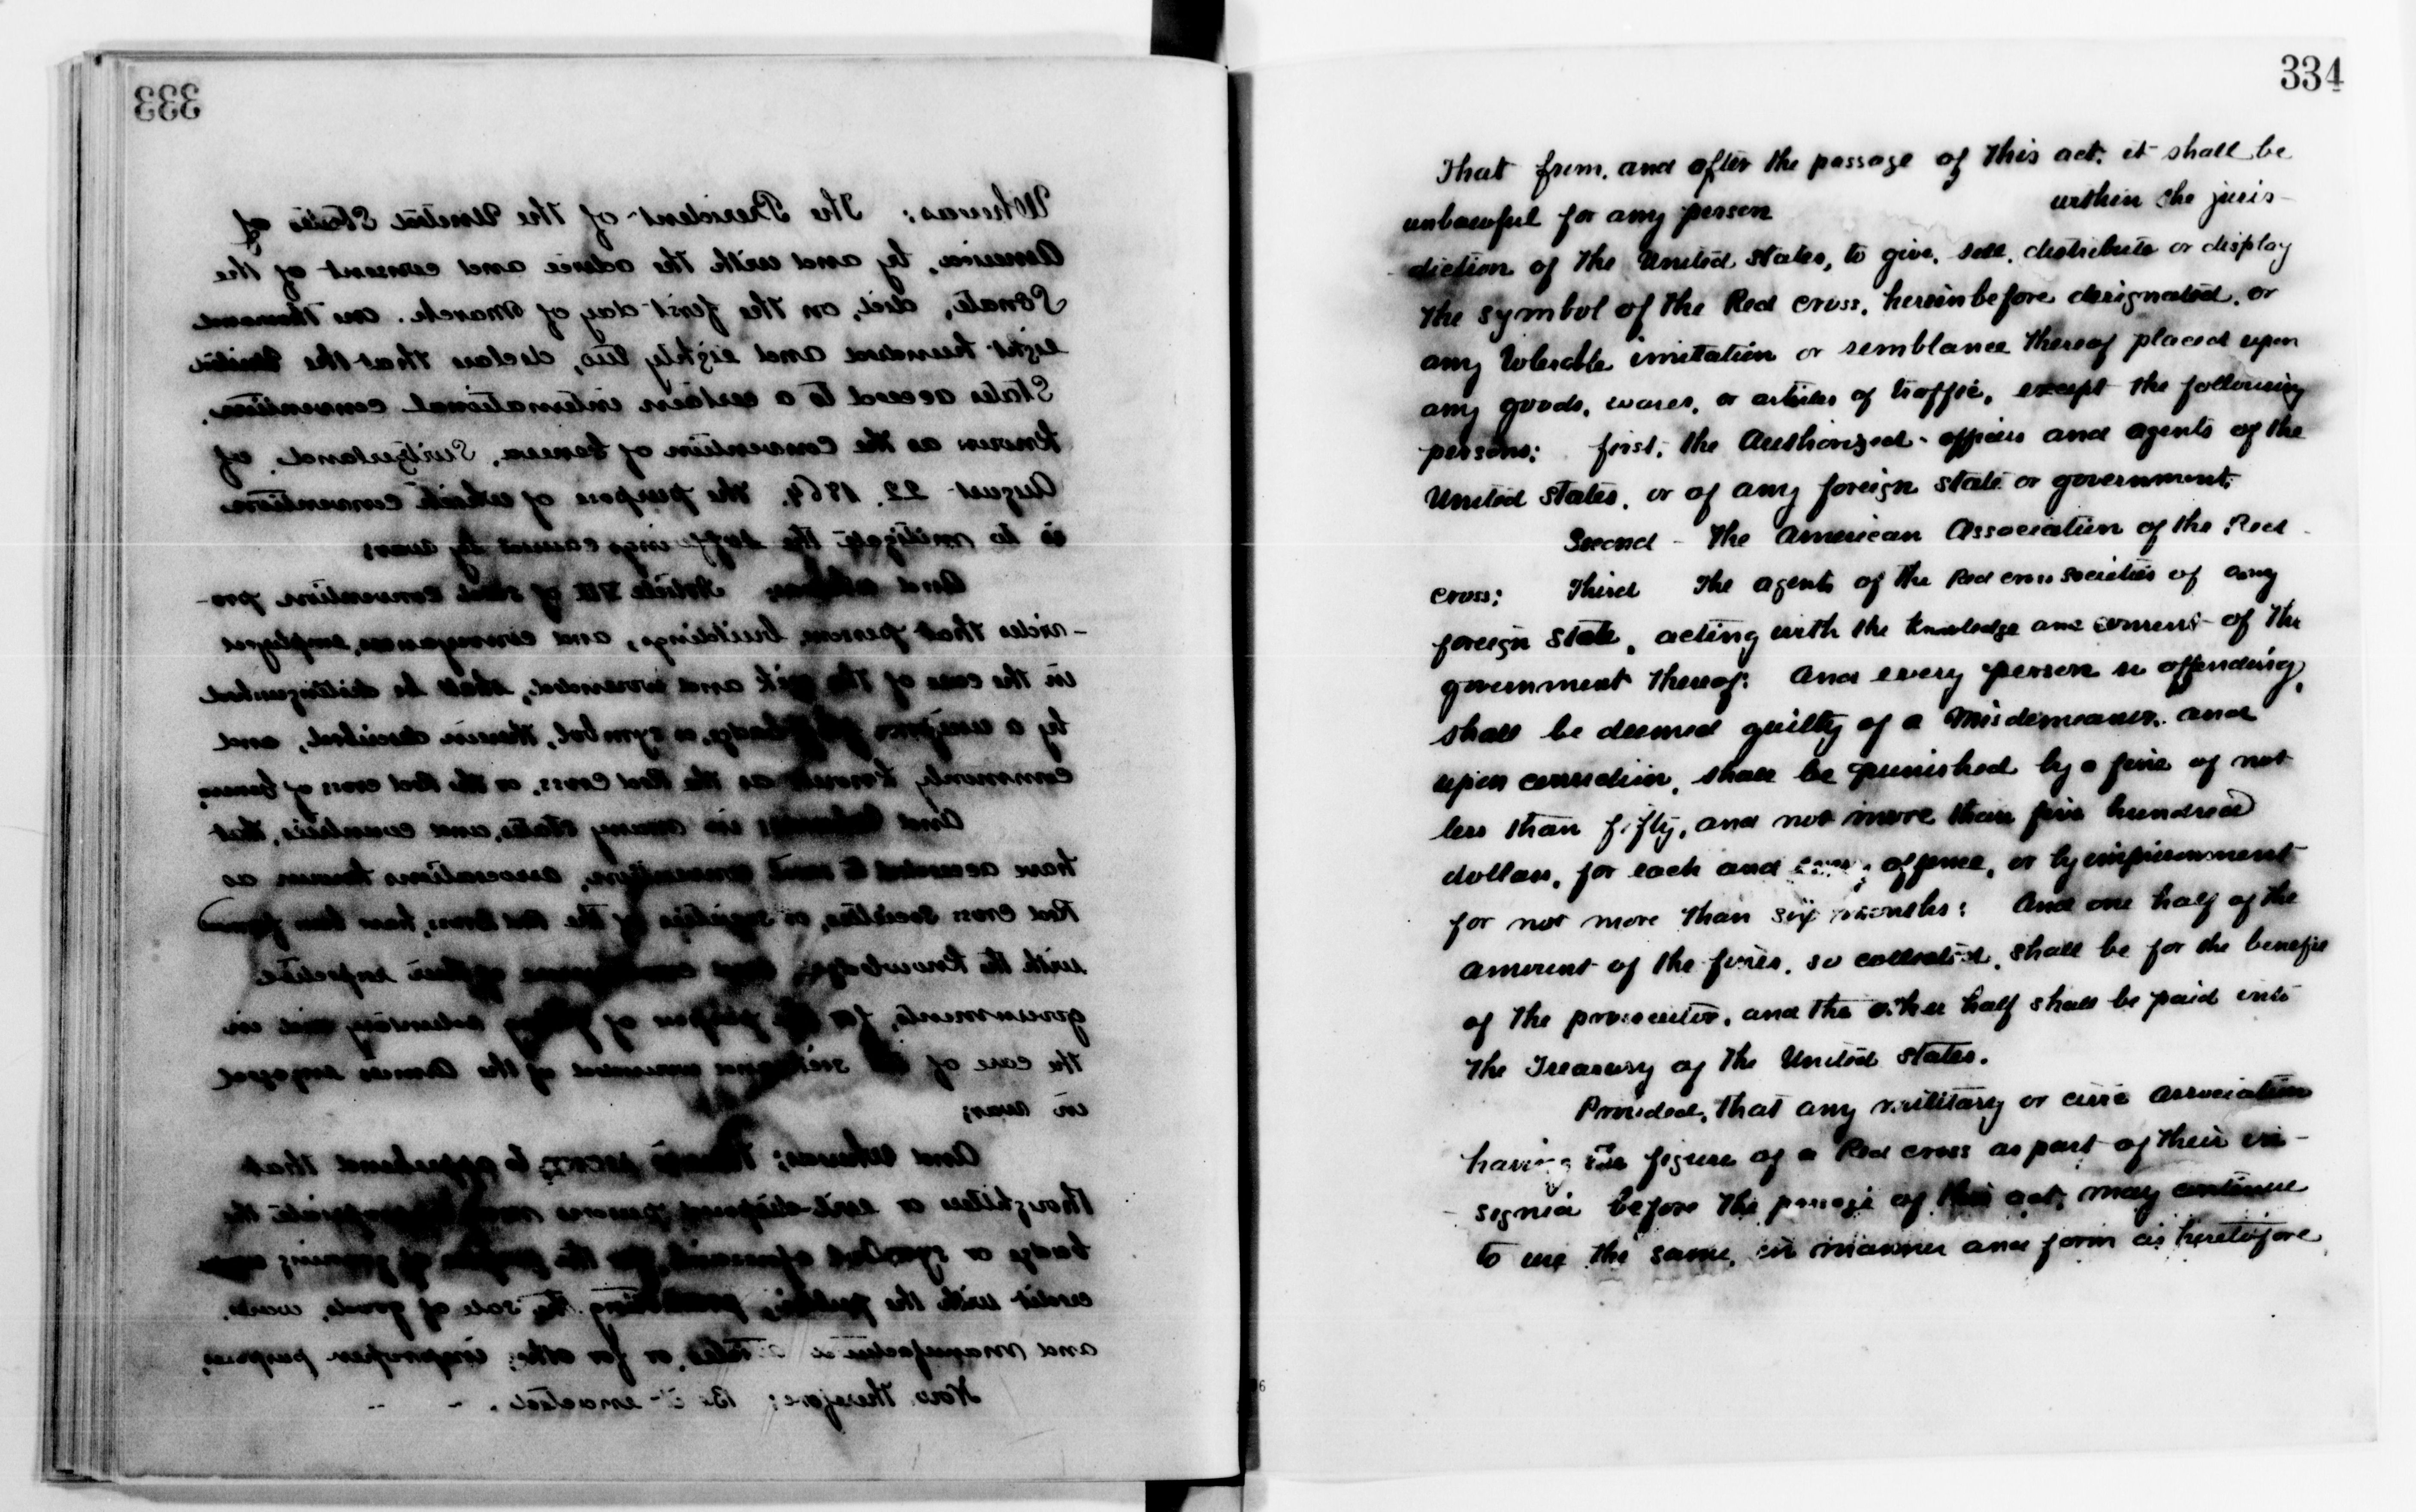 333
Whereas; The President of the United States of
America, by and with the advice and consent of the
Senate, did, on the first day of March. one thousand
eight hundred and eighty two, declare that the United
States acceed to a certain international convention.
Known as the Convention of Geneva, Switzerland, of
August 22. 1864. the purpose of which convention
is to mitigate the sufferings caused by war;
And whereas; Article VII of said Convention pro-
-vides that persons, buildings, and conveyances, employed
in the care of the sick and wounded, shall be distinguished
by a uniform badge, or symbol, therein described, and
commonly known as the Red Cross, or the Red cross of Geneva;
And whereas; in many states, and countries, that
have acceeded to said convention, associations known as
Red cross societies, or societies of the Red Cross, have been formed
with the knowledge, and of their respective
governments, for the purpose of voluntary aid in
the care of the sick and wounded of the Armies engaged
in war;
And whereas; to apprehend that
thoughtless or evil-disposed persons may the
badge or symbol aforesaid, for the purpose of gaining
credit with the public, promoting the sale of goods, wares.
and manufactured articles, or for other improper purposes,
Now Therefore; Be it enacted.
334
That from. and after the passage of this act. it shall be
unlawful for any person within the juris-
diction of the United States, to give, sell, distribute or display
the symbol of the Red cross, hereinbefore designated, or
any tolerable imitation or semblance thereof placed upon
any goods, wares, or articles of traffic, except the following
persons; first; the Authorized officers and agents of the
United States, or of any foreign state or government;
Second - The American Association of the Red
cross; Third The agents of the Red cross societies of any
foreign state, acting with the knowledge and consent of the
government thereof: And every person so offending,
shall be deemed guilty of a Misdemeanor. and
upon conviction, shall be punished by a fine of not
less than fifty, and not more than five hundred
dollars, for each and every offence, or by imprisonment
for not more than six months; And one half of the
amount of the fines, so collected, shall be for the benefit
of the prosecutor, and the other half shall be paid into
the Treasury of the United States.
Provided, That any military or civic association
having the figure of a Red cross as part of their in-
signia before the passage of this act, may continue
to use the same, in manner and form as heretofore